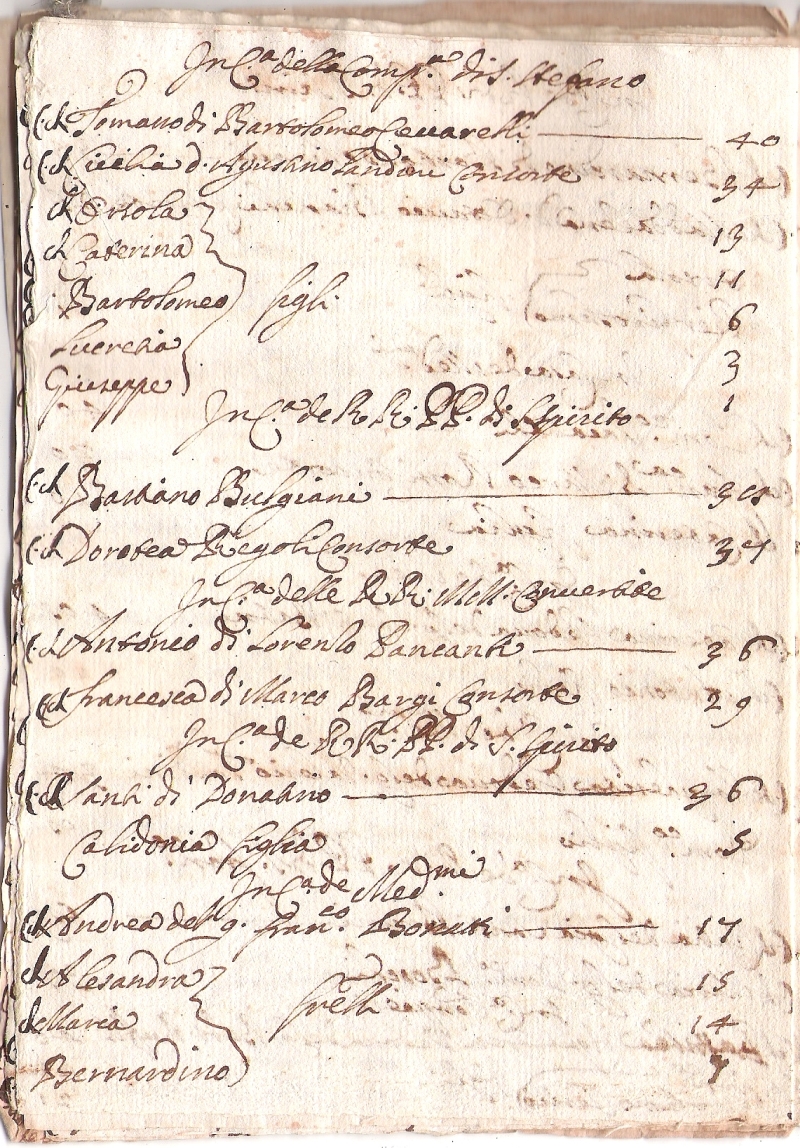 In C.ª della Comp.ª di S. Stefano
C. ch Tomasso di Bartolomeo Ceccarelli 40
C. ch Cicilia d. Agustino Landini Consorte 34
ch Orsola 13
ch Caterina 11
Bartolomeo figli 6
Lucretia 3
Giuseppe 1
In C.ª de RR: PP. di S. Spirito
C. ch Bastiano Busgiani 30
C. ch Dorotea Regoli Consorte 37
In C.ª delle RR: MM: Convertite
C. ch Antonio di Lorenzo Pancanti 36
C. ch Francesca di Marco Bargi Consorte 29
In C.ª de RR: PP. di S. Spirito
C. ch Santi di Donatino 36
Calidonia figlia 5
In C.ª de Med.mi
C. ch Andrea del q. Fran.co Bonatti 17
ch Alesandra 15
ch Maria frẽlli 14
Bernardino 7